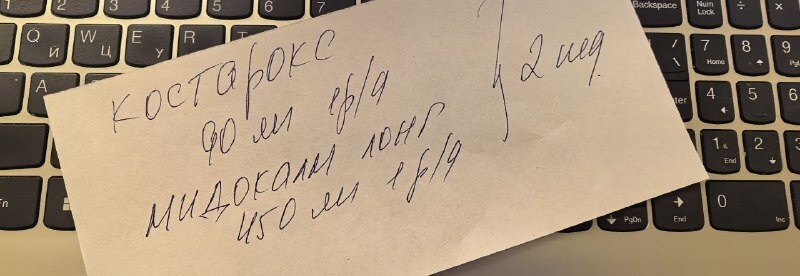 костарокс
90 мг 1 р/д
мидокалм лонг
450 мг 1 р/д
2 нед.
Q Й
W Ц
E У
R
A
Backspace
Num Lock
÷
×
7 Home
8
9
4
1 End
2
0
PgDn
End